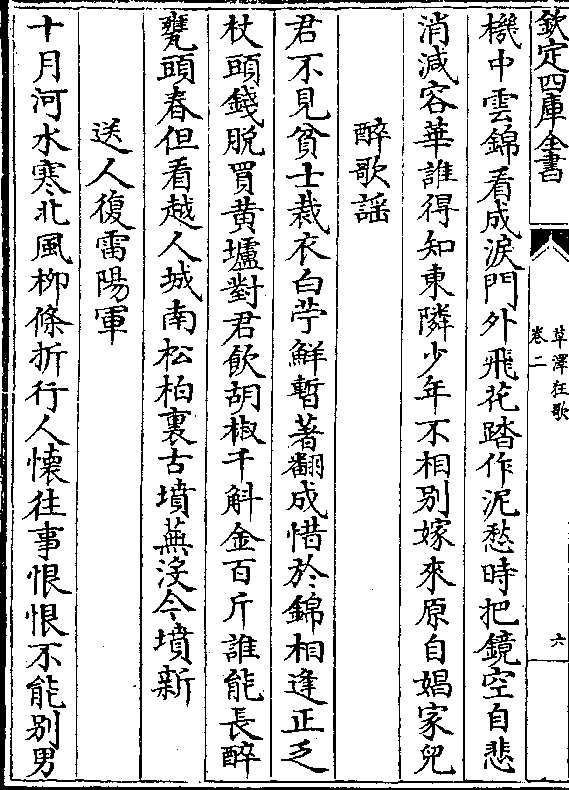 欽定四庫全書
草澤狂歌
卷二
六
機中雲錦看成淚門外飛花踏作泥愁時把鏡空自悲
消減容華誰得知東隣少年不相別嫁來原自娼家兒
醉歌謡
君不見貧士裁衣白苧鮮暫著翻成惜於錦相逢正乏
杖頭錢脫買黄壚對君飲胡椒千斛金百斤誰能長醉
甕頭春但看越人城南松柏裏古墳蕪没今墳新
送人復雷陽軍
十月河水寒北風柳條折行人懐往事恨恨不能别男